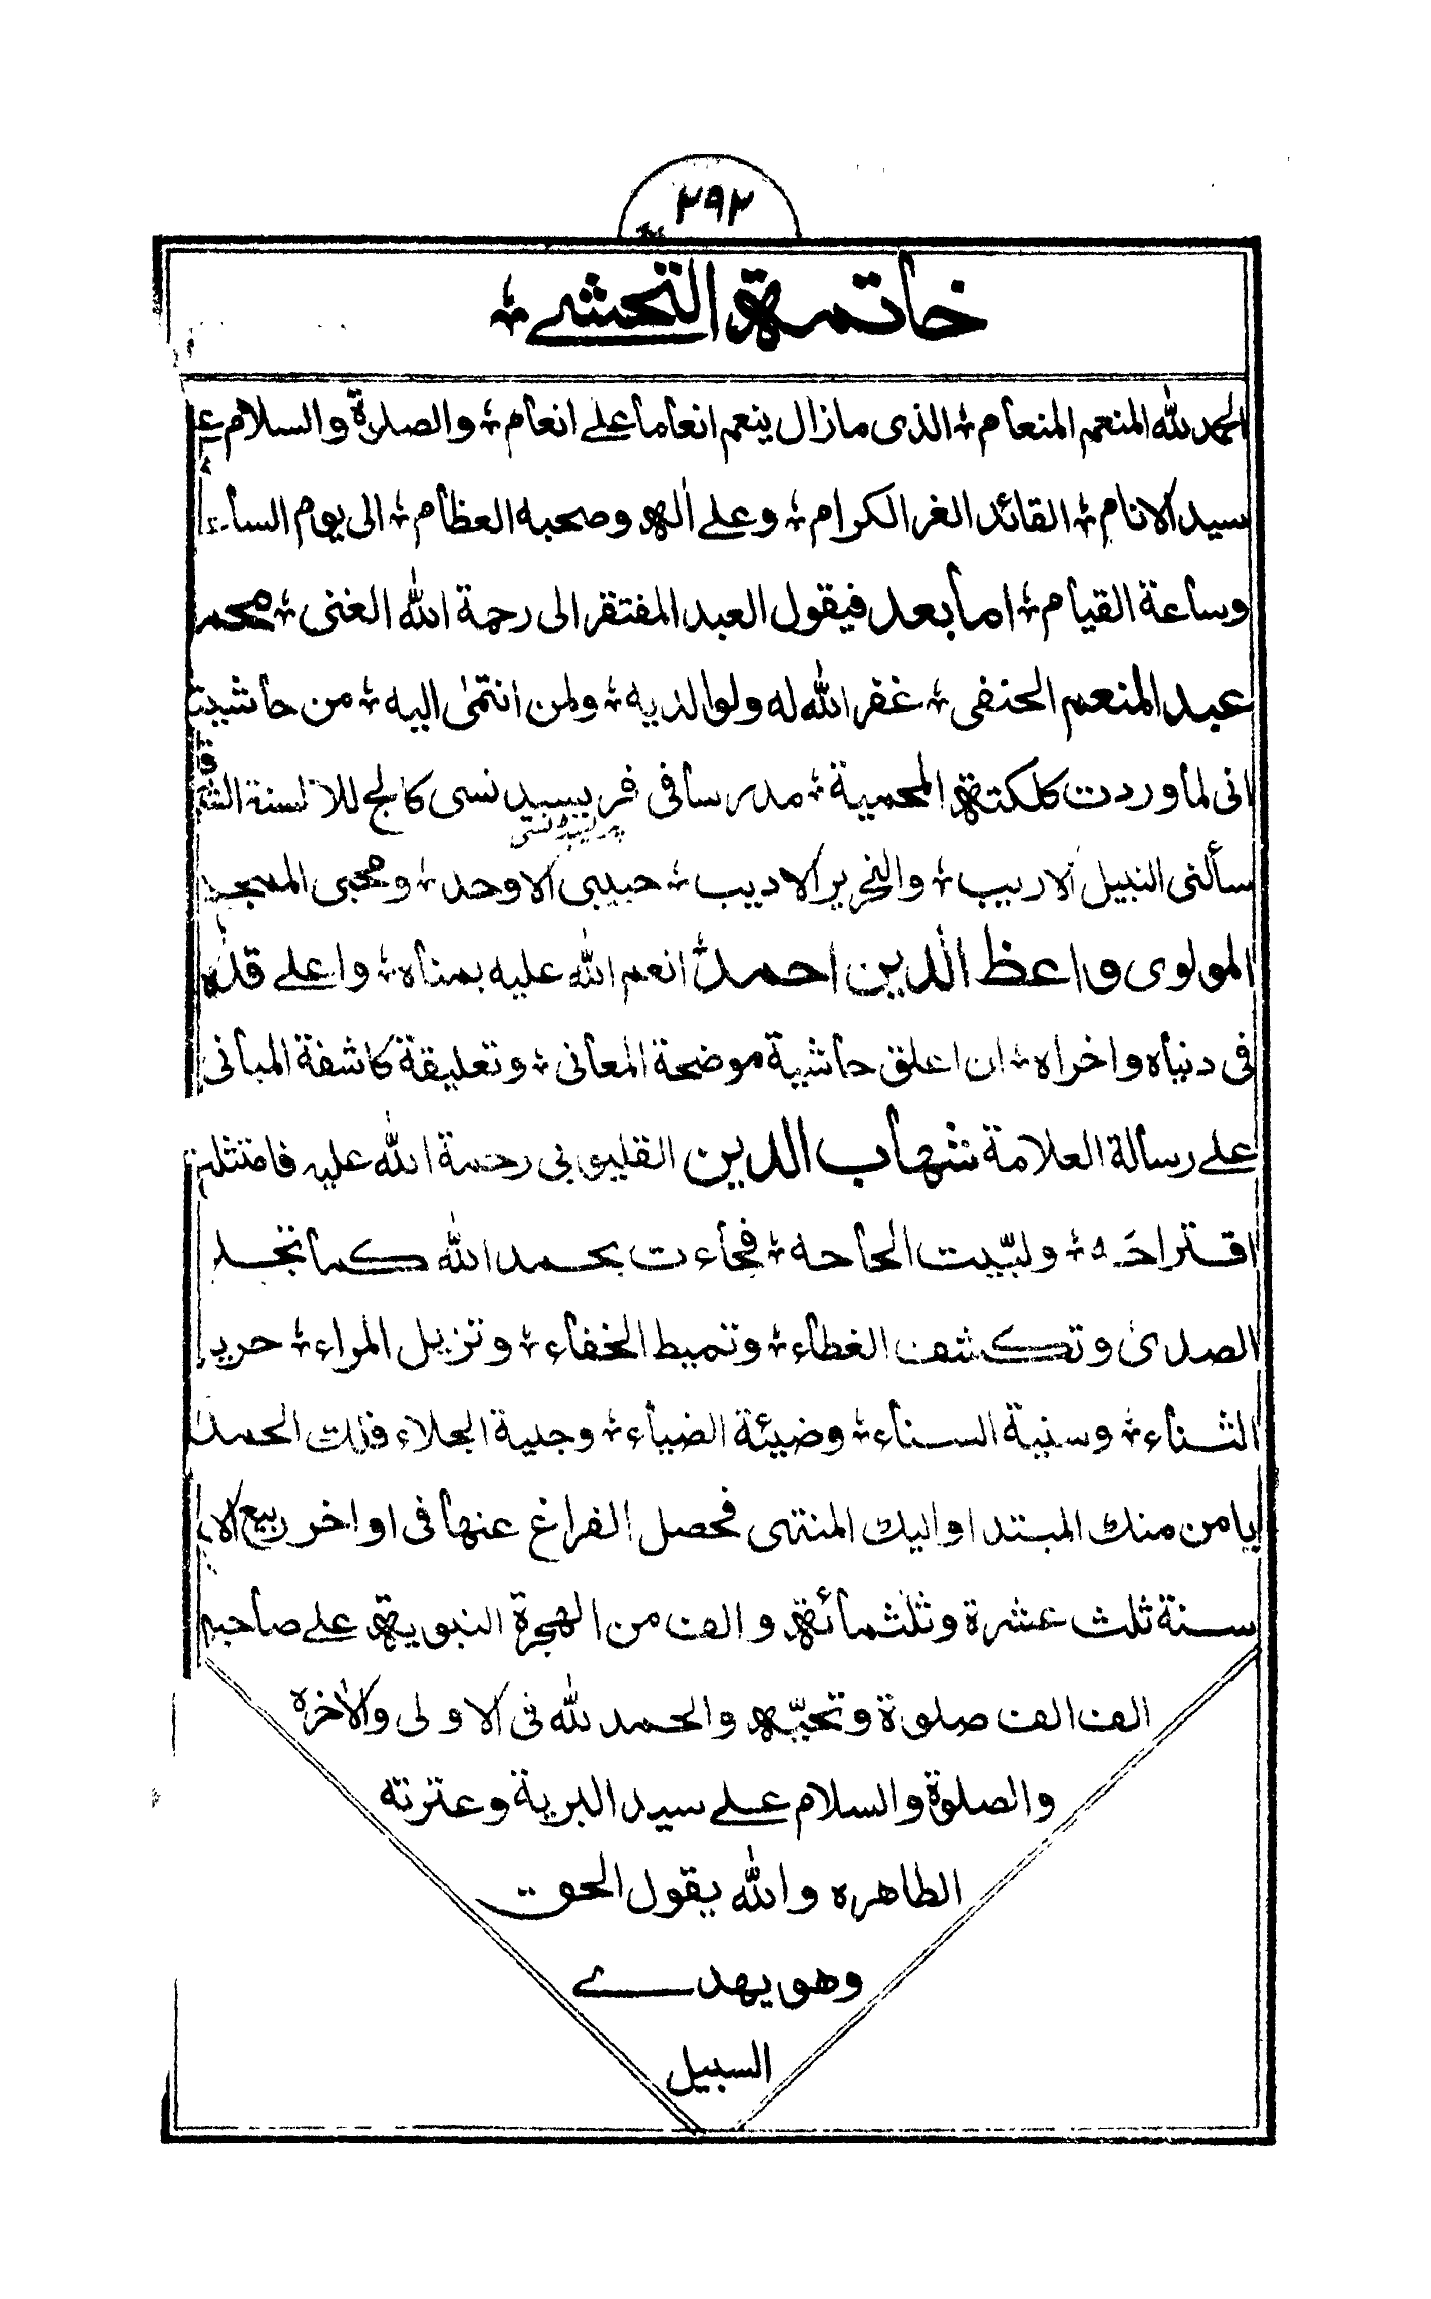 ٢٩٢
خاتمة التحشے ؞
الحمد لله المنعم المنعام ؞ الذى مازال ينعم انعاما علے انعام ؞ والصلوة والسلام
سيد الانام ؞ القائد الغر الكرام ؞ وعلے اله وصحبه العظام ؞ الى يوم
وساعة القيام ؞ اما بعد فيقول العبد المفتقر الى رحمة الله الغنى ؞ محمد
عبد المنعم الحنفى ؞ غفر الله له ولوالديه ؞ ولمن انتمٰى اليه ؞ من حاشيته
انى لما وردت كلكته المحمية ؞ مدرسا فى فريسيد نسى كالج للالسنة
سألنى النبيل الاريب ؞ والنحرير الاديب ؞ حبيبى الاوحد ؞ ومحبى
المولوى واعظ الدين احمد انعم الله عليه بمناه ؞ واعلے قدره
فى دنياه واخراه ؞ ان اعلق حاشية موضحة المعانى ؞ وتعليقة كاشفة المبانى
علے رسالة العلامة شهاب الدين القليوبى رحمة الله عليه فامتثلت
اقتراحَه ؞ ولبّيت الحاحه ؞ فجاءت بحمد الله كما تجلو
الصدىٰ وتكشف الغطاء ؞ وتميط الخفاء ؞ وتزيل المراء ؞
الثناء ؞ وسنية السناء ؞ وضيئة الضياء ؞ وجلية الجلاء فلك الحمد
يا من منك المبتدا واليك المنتهى فحصل الفراغ عنها فى اواخر ربيع
سنة ثلث عشرة وثلثمائة والف من الهجرة النبوية علے صاحبها
الف الف صلوة وتحيّة والحمد لله فى الاولى والاٰخرة
والصلوة والسلام علے سيد البرية وعترته
الطاهره والله يقول الحق
وهو يهدے
السبيل